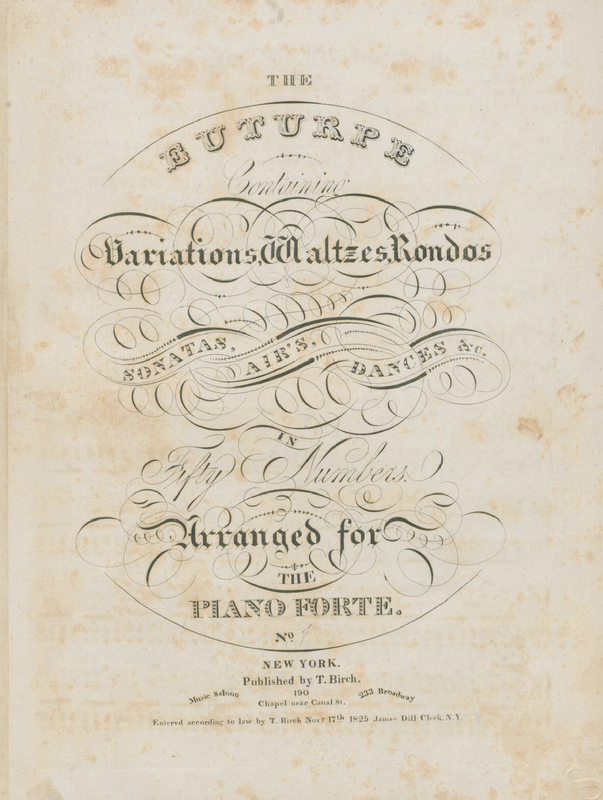 THE
EUTURPE
Containing
Variations, Waltzes, Rondos
SONATAS, AIR'S, DANCES &c.
IN
Fifty Numbers.
Arranged for
THE
PIANO FORTE.
No
NEW YORK.
Published by T. Birch.
Music Saloon 190 233 Broadway
Chapel near Canal St.
Entered according to law by T. Birch Novr 17th 1825 James Dill Clerk, N.Y.